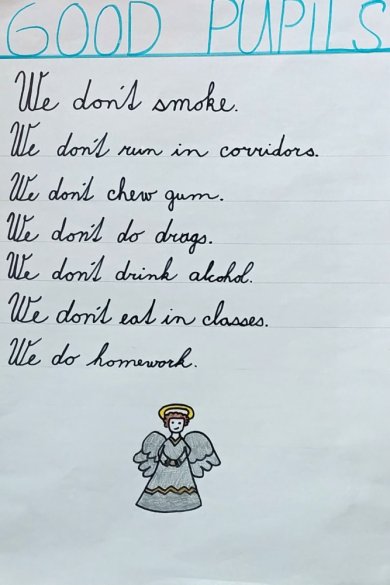 GOOD PUPILS
We don't smoke.
We don't run in corridors.
We don't chew gum.
We don't do drags.
We don't drink alcohol.
We don't eat in classes.
We do homework.